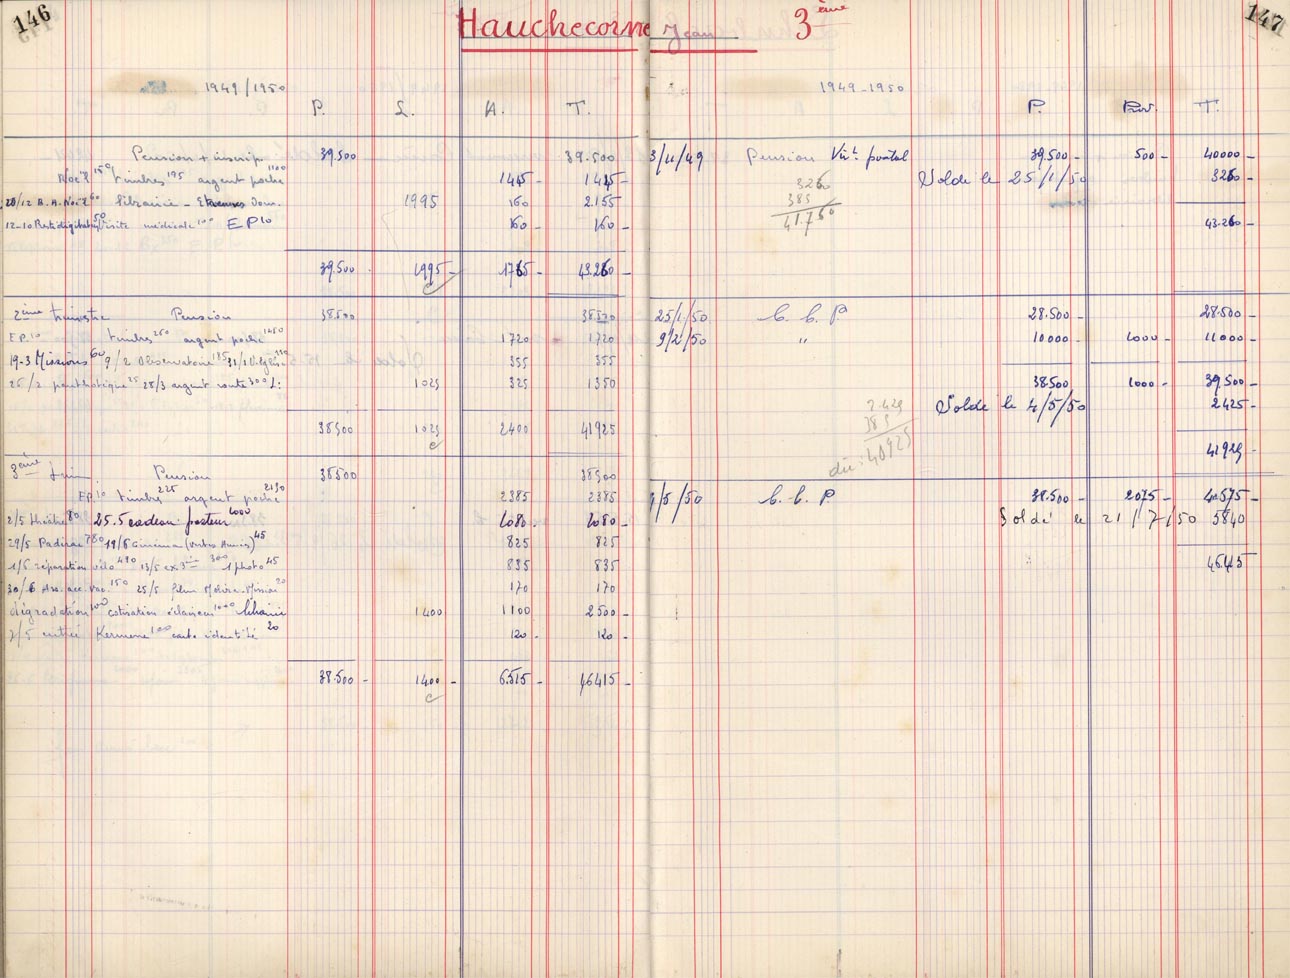 146
Hauchecorne Jean 3ème
147
1949/1950
P. L. A. T.
Pension + inscrip 39.500 39.500
Noël 150 timbres 195 argent poche 1100 1445 - 1445 -
28/12 B.A. Noël 60 librairie - Etrennes Dom. 1995 160 2.155
12-10 50 Visite médicale 100 EP 10 160 - 160 -
39.500 - 1995 - 1765 - 43.260 -
2ème trimestre Pension 38.500 38.500
EP. 10 timbres 260 argent poche 1450 1720 1720
19-3 Missions 60 9/2 Observatoire 185 31/1 355 355
25 28/3 argent route 300 L: 1025 325 1350
38500 1025 2400 41925
3ème trim. Pension 38500 38500
EP. 10 timbres 225 argent poche 2150 2385 2385
2/5 théâtre 80 25.5 cadeau pasteur 1000 1080 - 1080 -
29/5 Padirac 780 19/6 Cinéma (Vertes Années) 45 825 825
1/6 réparation vélo 490 13/5 300 1 photo 45 835 835
30/6 150 25/5 film Molière-Mission 20 170 170
dégradation 100 cotisation éclaireur 1000 1400 1100 2500 -
7/5 entrée Kermesse 100 carte identité 20 120 - 120 -
38.500 - 1400 - 6.515 - 46415 -
1949-1950
P. Prov. T.
3/11/49 Pension Virt postal 39.500 - 500 - 40000 -
Solde le 25/1/50 3260 -
3260
385
41.760
43.260 -
25/1/50 C. C. P 28.500 - 28.500 -
9/2/50 " 10000 - 1000 - 11000 -
38500 1000 - 39.500 -
Solde le 4/5/50 2425 -
2.425
385
dû: 40925
41925 -
9/5/50 C. C. P 38.500 - 2075 - 40575 -
Soldé le 21/7/50 5840
46415